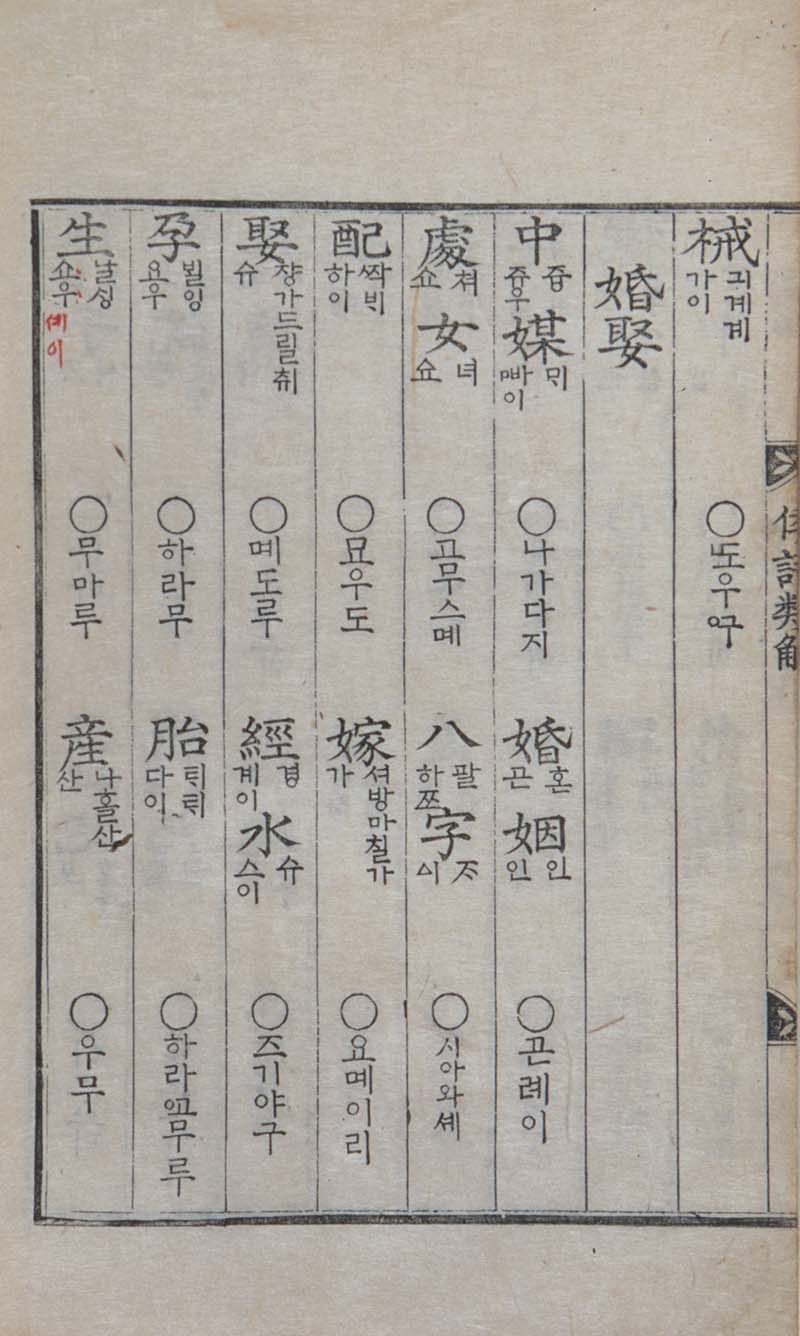 倭語類解
械 긔계계 가이 ○ᄕᅩ우ᅁᅮ
婚娶
中 즁 쥬우 媒 ᄆᆡ 빠이 ○나가다지 婚 혼 곤 姻 인 인 ○곤례이
處 쳐 쇼 女 녀 쇼 ○고무스몌 八 팔 하ᄍᆞ 字 ᄌᆞ 시 ○시아와셰
配 ᄶᅡᆨᄇᆡ 하이 ○묘우도 嫁 셔방마칠가 가 ○요몌이리
娶 쟝가드릴취 슈 ○몌도루 經 경 계이 水 슈 스이 ○즈기야구
孕 ᄇᆡᆯ잉 요우 ○하라무 胎 ᄐᆡᄐᆡ 다이 ○하라ᅁᅩ무루
生 날ᄉᆡᆼ 쇼우 셰이 ○무마루 産 나흘산 산 ○우무